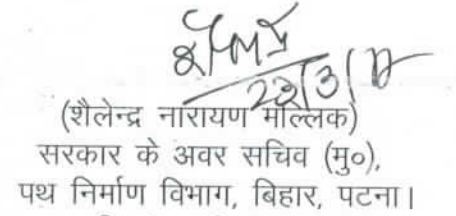 23/3/17
(शैलेन्द्र नारायण मल्लिक)
सरकार के अवर सचिव (मु०),
पथ निर्माण विभाग, बिहार, पटना।